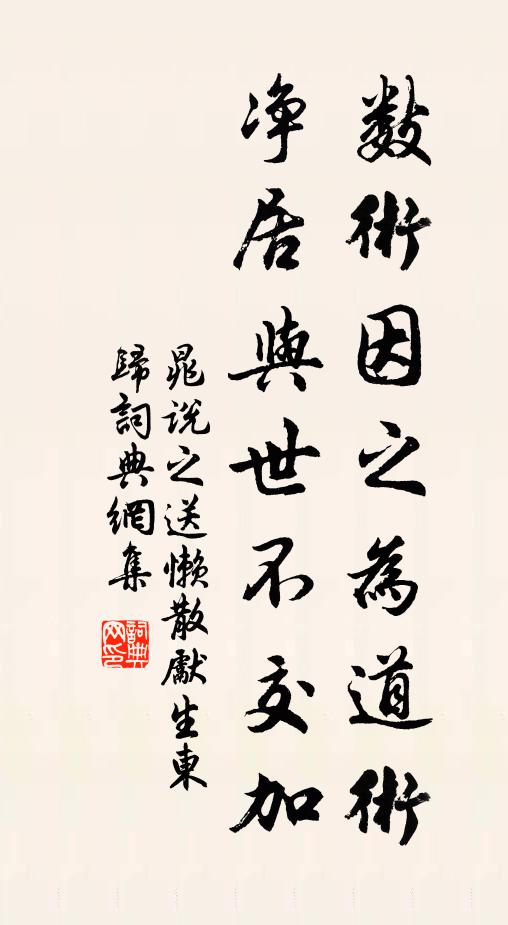 數術因之為道術
净居與世不交加
晁說之送懶散處生東
歸詞典網集
詞典網印